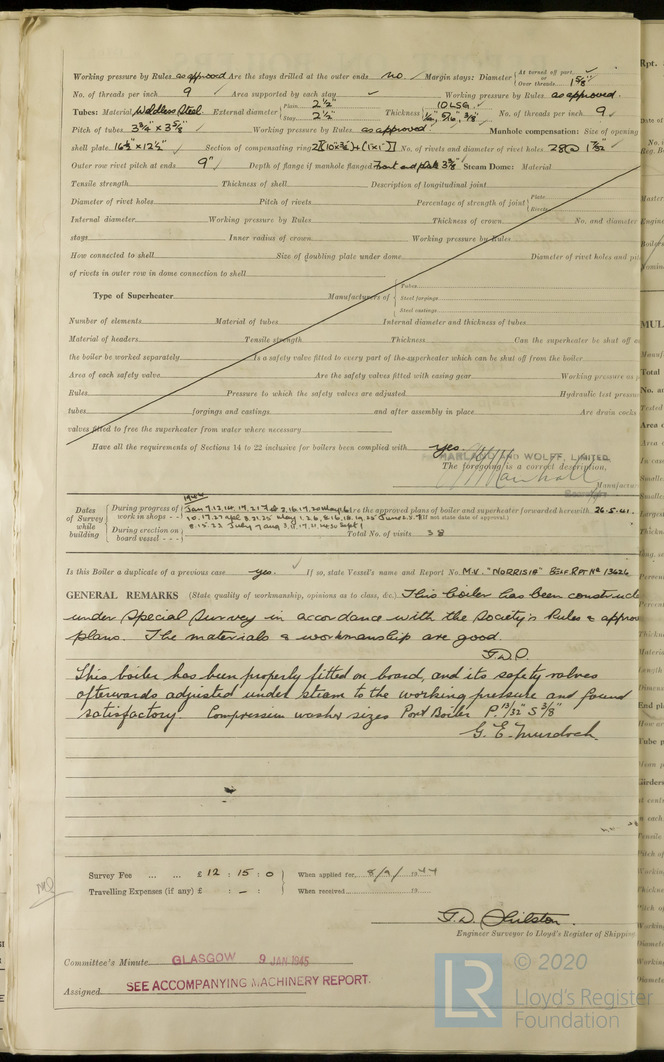 Working pressure by Rules as approved Are the stays drilled at the outer ends no Margin stays: Diameter { At turned off part, or Over threads 1 5/8"
No. of threads per inch 9 Area supported by each stay Working pressure by Rules as approved.
Tubes: Material Weldless Steel External diameter { Plain 2 1/2" Stay 2 1/2" Thickness { 10 LSG. 5/16", 3/8" No. of threads per inch 9
Pitch of tubes 3 3/4" x 3 5/8" Working pressure by Rules as approved Manhole compensation: Size of opening
shell plate 16 1/2" x 12 1/2" Section of compensating ring No. of rivets and diameter of rivet holes 28 @ 1 7/32
Outer row rivet pitch at ends 9" Depth of flange if manhole flanged Steam Dome: Material
Tensile strength Thickness of shell Description of longitudinal joint
Diameter of rivet holes Pitch of rivets Percentage of strength of joint { Plate Rivets
Internal diameter Working pressure by Rules Thickness of crown No. and diameter
stays Inner radius of crown Working pressure by Rules
How connected to shell Size of doubling plate under dome Diameter of rivet holes and
of rivets in outer row in dome connection to shell
Type of Superheater Manufacturers of { Tubes Steel forgings Steel castings
Number of elements Material of tubes Internal diameter and thickness of tubes
Material of headers Tensile strength Thickness Can the superheater be shut off
the boiler be worked separately Is a safety valve fitted to every part of the superheater which can be shut off from the boiler
Area of each safety valve Are the safety valves fitted with easing gear Working pressure as
Rules Pressure to which the safety valves are adjusted Hydraulic test pressure
tubes forgings and castings and after assembly in place Are drain cocks
valves fitted to free the superheater from water where necessary
Have all the requirements of Sections 14 to 22 inclusive for boilers been complied with yes.
HARLAND AND WOLFF, LIMITED
The foregoing is a correct description,
Marshall
Manufacturer
Secretary
Dates of Survey while building
1944
During progress of work in shops
During erection on board vessel
Are the approved plans of boiler and superheater forwarded herewith 26.5.41.
(If not state date of approval.)
Total No. of visits 38
Is this Boiler a duplicate of a previous case yes. If so, state Vessel's name and Report No. M.V. "NORRISIA" BELF RPT No 13626
GENERAL REMARKS (State quality of workmanship, opinions as to class, &c.) This boiler has been constructed
under special survey in accordance with the Society's Rules & approved
plans. The materials & workmanship are good.
This boiler has been properly fitted on board, and its safety valves
afterwards adjusted under steam to the working pressure and found
satisfactory. Compression washer sizes Port Boiler P. 13/32" S 3/8"
G. E. Murdoch.
Survey Fee ... ... £ 12 : 15 : 0 When applied for, 8/9/1944
Travelling Expenses (if any) £ : - : When received, 19
Engineer Surveyor to Lloyd's Register of Shipping
Committee's Minute GLASGOW 9 JAN 1945
Assigned SEE ACCOMPANYING MACHINERY REPORT.
LR
© 2020
Lloyd's Register
Foundation